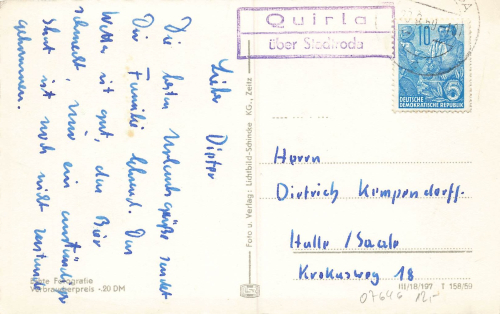 Quirla
über Stadtroda
10
DEUTSCHE
DEMOKRATISCHE REPUBLIK
Lieber Dieter
Die besten Urlaubsgrüße sendet
Dir Familie Lehrend. Das
Wetter ist gut, das Bier
schmeckt, nur ein anständiger
Skat ist noch nicht zustande
gekommen.
Echte Fotografie
Verbraucherpreis -.20 DM
Foto u. Verlag: Lichtbild-Schincke KG., Zeitz
Herrn
Dietrich Kempendorff.
Halle / Saale
Krokusweg 18
III/18/197 T 158/59
07646